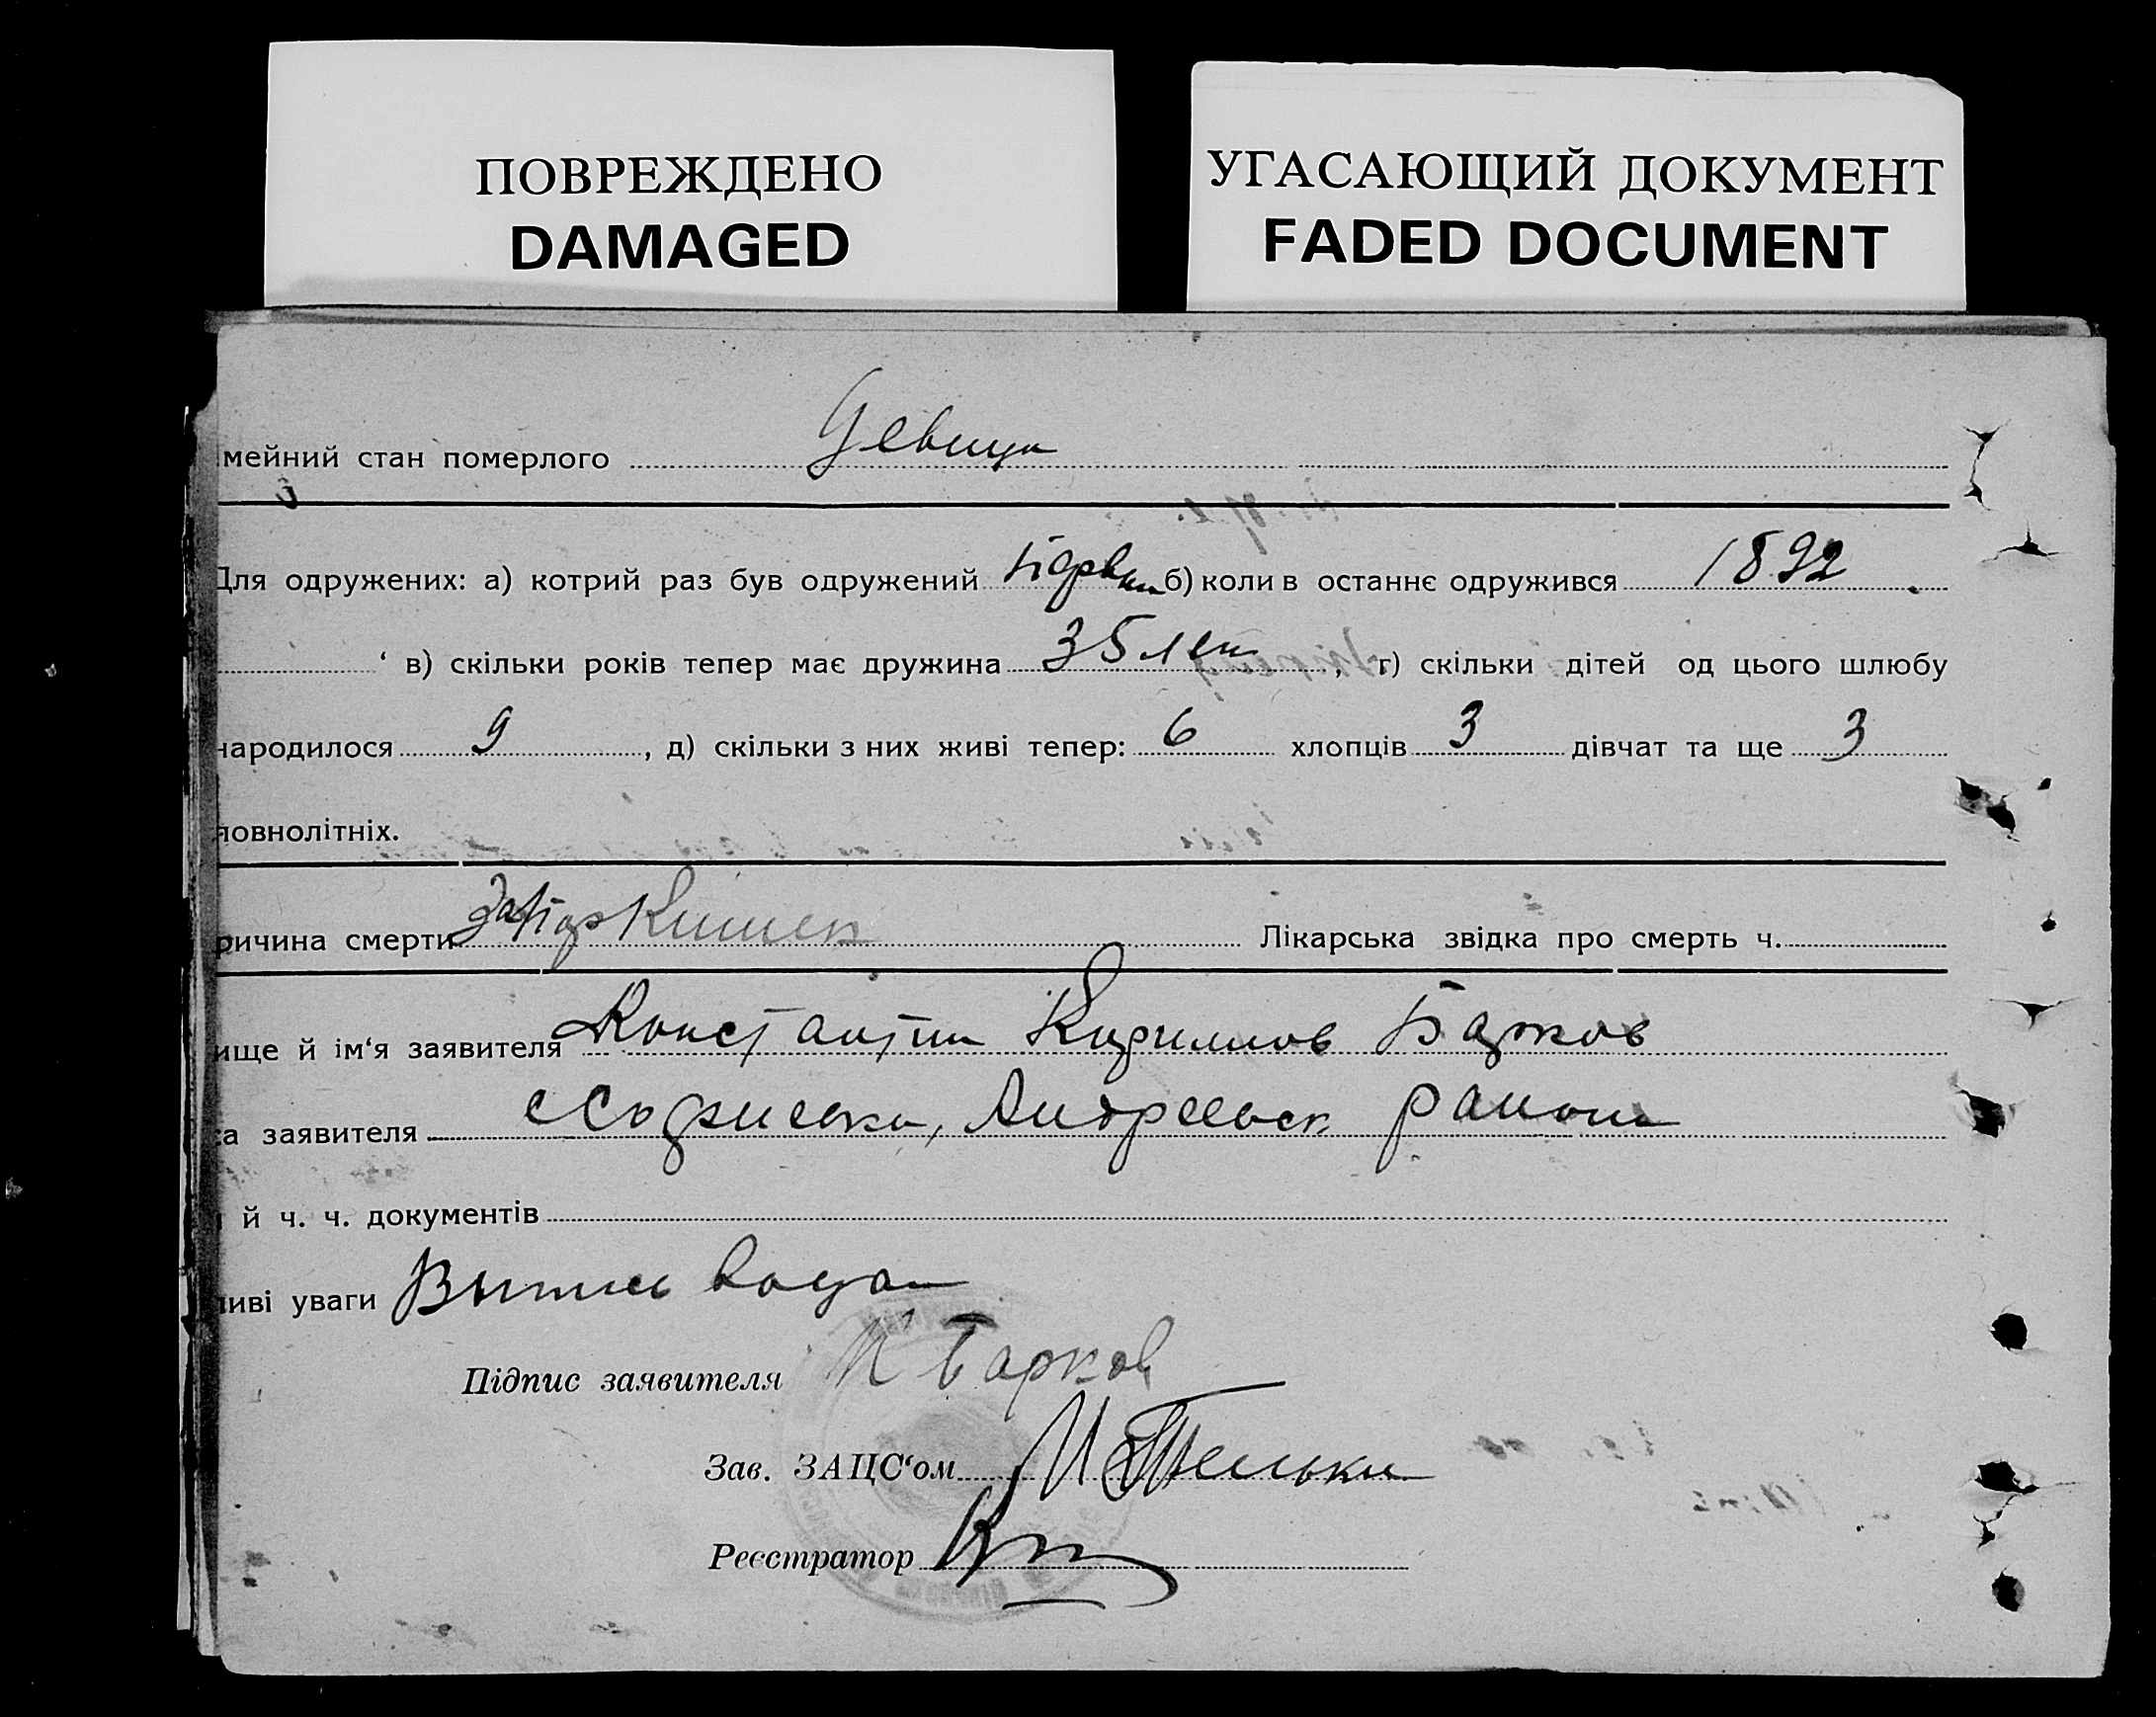 ПОВРЕЖДЕНО
DAMAGED
УГАСАЮЩИЙ ДОКУМЕНТ
FADED DOCUMENT
мейний стан померлого Девица
Для одружених: а) котрий раз був одружений б) коли в останнє одружився 1892
в) скільки років тепер має дружина 35 лет, г) скільки дітей од цього шлюбу
народилося 9, д) скільки з них живі тепер: 6 хлопців 3 дівчат та ще 3
повнолітніх.
ричина смерти Запор Кишек Лікарська звідка про смерть ч.
ище й ім‘я заявителя Константин Кирилов Барков
са заявителя Андреевск район
й ч. ч. документів
ливі уваги Выпись
Підпис заявителя К Барков
Зав. ЗАЦС‘ом
Реєстратор